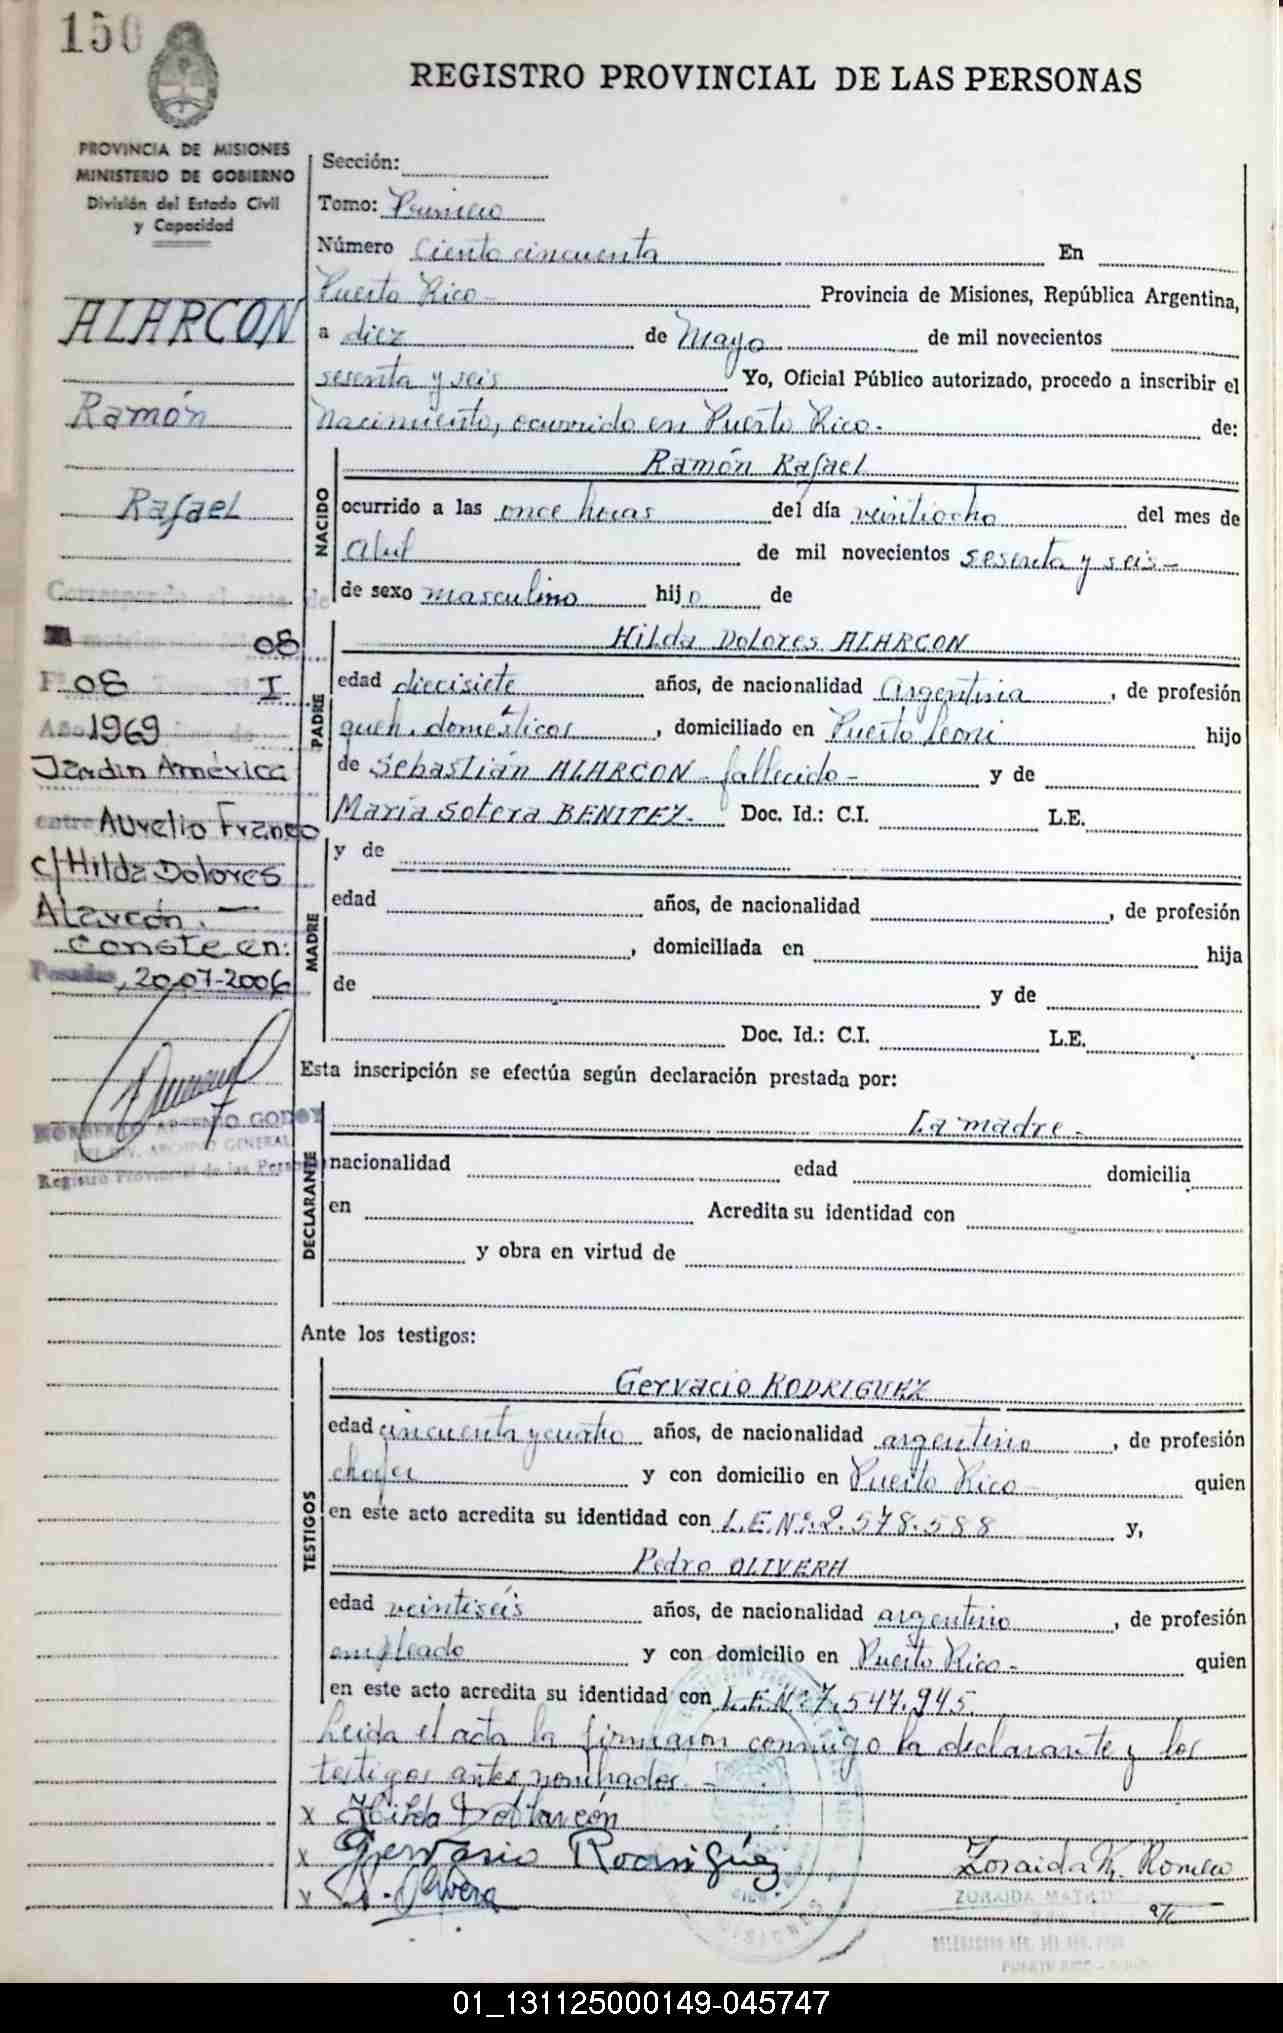 150
REGISTRO PROVINCIAL DE LAS PERSONAS
PROVINCIA DE MISIONES
MINISTERIO DE GOBIERNO
División del Estado Civil
y Capacidad
ALARCON
Ramón
Rafael
Corresponde al acta de
matrimonio 08
Fº 08 I
Año 1969
Jardin América
entre Aurelio Franco
c/ Hilda Dolores
Alarcón. —
Conste en:
Posadas, 20-07-2006
NORBERTO ARSENIO GODOY
ARCHIVO GENERAL
Registro Provincial de las Personas
Sección:
Tomo: Primero
Número Ciento cincuenta En
Puerto Rico - Provincia de Misiones, República Argentina,
a diez de Mayo de mil novecientos
sesenta y seis Yo, Oficial Público autorizado, procedo a inscribir el
Nacimiento, ocurrido en Puerto Rico - de:
NACIDO
Ramón Rafael
ocurrido a las once horas del día veintiocho del mes de
Abril de mil novecientos sesenta y seis -
de sexo masculino hijo de
PADRE
Hilda Dolores ALARCON
edad diecisiete años, de nacionalidad argentina, de profesión
queh. domésticos, domiciliado en Puerto Leoni hijo
de Sebastián ALARCON - fallecido - y de
María Sotera BENITEZ - Doc. Id.: C.I. L.E.
MADRE
y de
edad años, de nacionalidad , de profesión
, domiciliada en hija
de y de
Doc. Id.: C.I. L.E.
Esta inscripción se efectúa según declaración prestada por:
DECLARANTE
La madre -
nacionalidad edad domicilia
en Acredita su identidad con
y obra en virtud de
Ante los testigos:
TESTIGOS
Gervacio RODRIGUEZ
edad cincuenta y cuatro años, de nacionalidad argentino, de profesión
chofer y con domicilio en Puerto Rico - quien
en este acto acredita su identidad con L.E.Nº 2.578.588 y,
Pedro OLIVERA
edad veintiséis años, de nacionalidad argentino, de profesión
empleado y con domicilio en Puerto Rico - quien
en este acto acredita su identidad con L.E.Nº 7.547.945.
Leida el acta la firmaron conmigo la declarante y los
testigos antes nombrados. -
x Hilda D Alarcón
x Gervasio Rodriguez
x Olivera
Zoraida M. Romero
ZORAIDA
PUERTO RICO
MISIONES
01_131125000149-045747